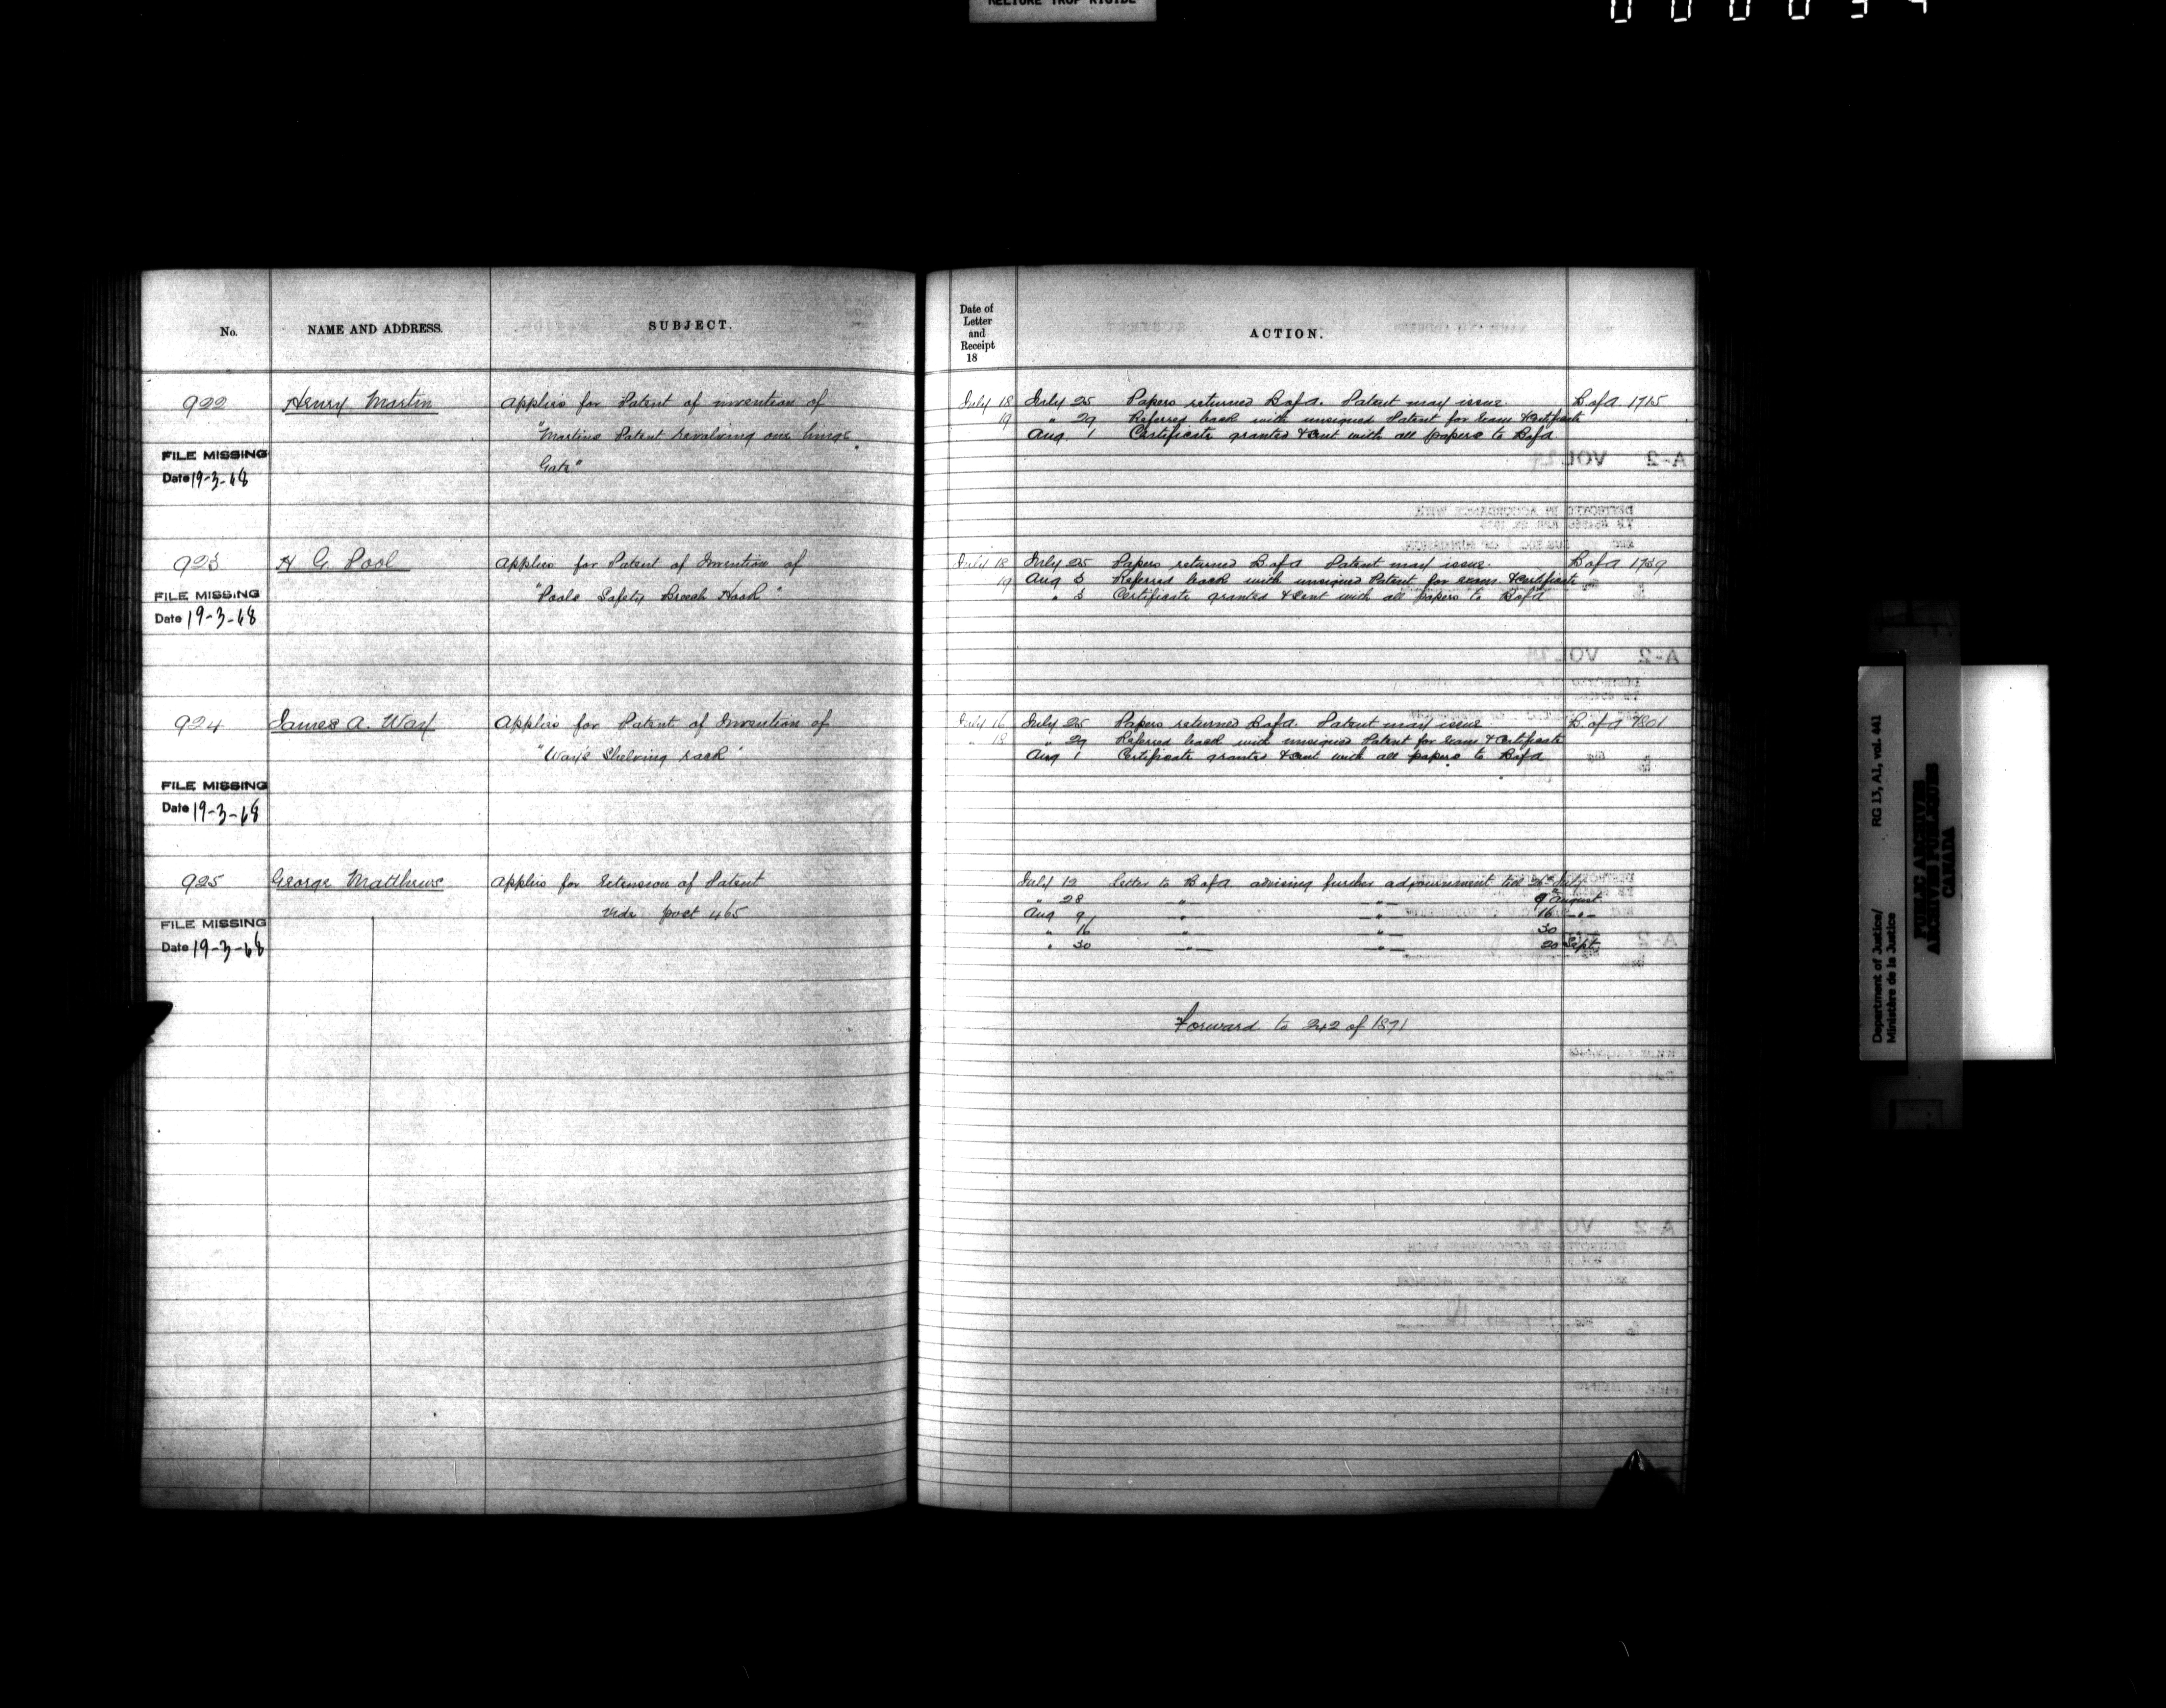 RELIURE TROP RIGIDE
No.
NAME AND ADDRESS.
SUBJECT.
922
Henry Martin
Applies for Patent of invention of
"Martins Patent revolving one hinge
Gate"
FILE MISSING
Date 19-3-68
923
H G. Pool
Applies for Patent of Invention of
"Pools Safety Breech Hook"
FILE MISSING
Date 19-3-68
924
James A. Way
Applies for Patent of Invention of
"Ways Shelving rack"
FILE MISSING
Date 19-3-68
925
George Matthews
Applies for Extension of Patent
Vide post 465
FILE MISSING
Date 19-3-68
Date of
Letter
and
Receipt
18
ACTION.
July 18 July 25 Papers returned B of A. Patent may issue B of A 1715
19 " 29 Referred back with unsigned Patent for Exam & Certificate
Aug 1 Certificate granted & sent with all papers to B of A
July 18 July 25 Papers returned B of A Patent may issue. B of A 1739
19 Aug 3 Referred back with unsigned Patent for exam. & certificate
" 3 Certificate granted & sent with all papers to B of A
July 16 July 25 Papers returned B of A. Patent may issue B of A 1801
" 18 " 29 Referred back with unsigned Patent for Exam & Certificate
Aug 1 Certificate granted & sent with all papers to B of A
July 12 Letter to B of A advising further adjournment till July
" 28 " " 9 August
Aug 9 " " 16 "
" 16 " " 30
" 30 " " 20 Sept.
Forward to 242 of 1871
Department of Justice/ RG 13, A1, vol. 441
Ministère de la Justice
PUBLIC ARCHIVES
ARCHIVES PUBLIQUES
CANADA